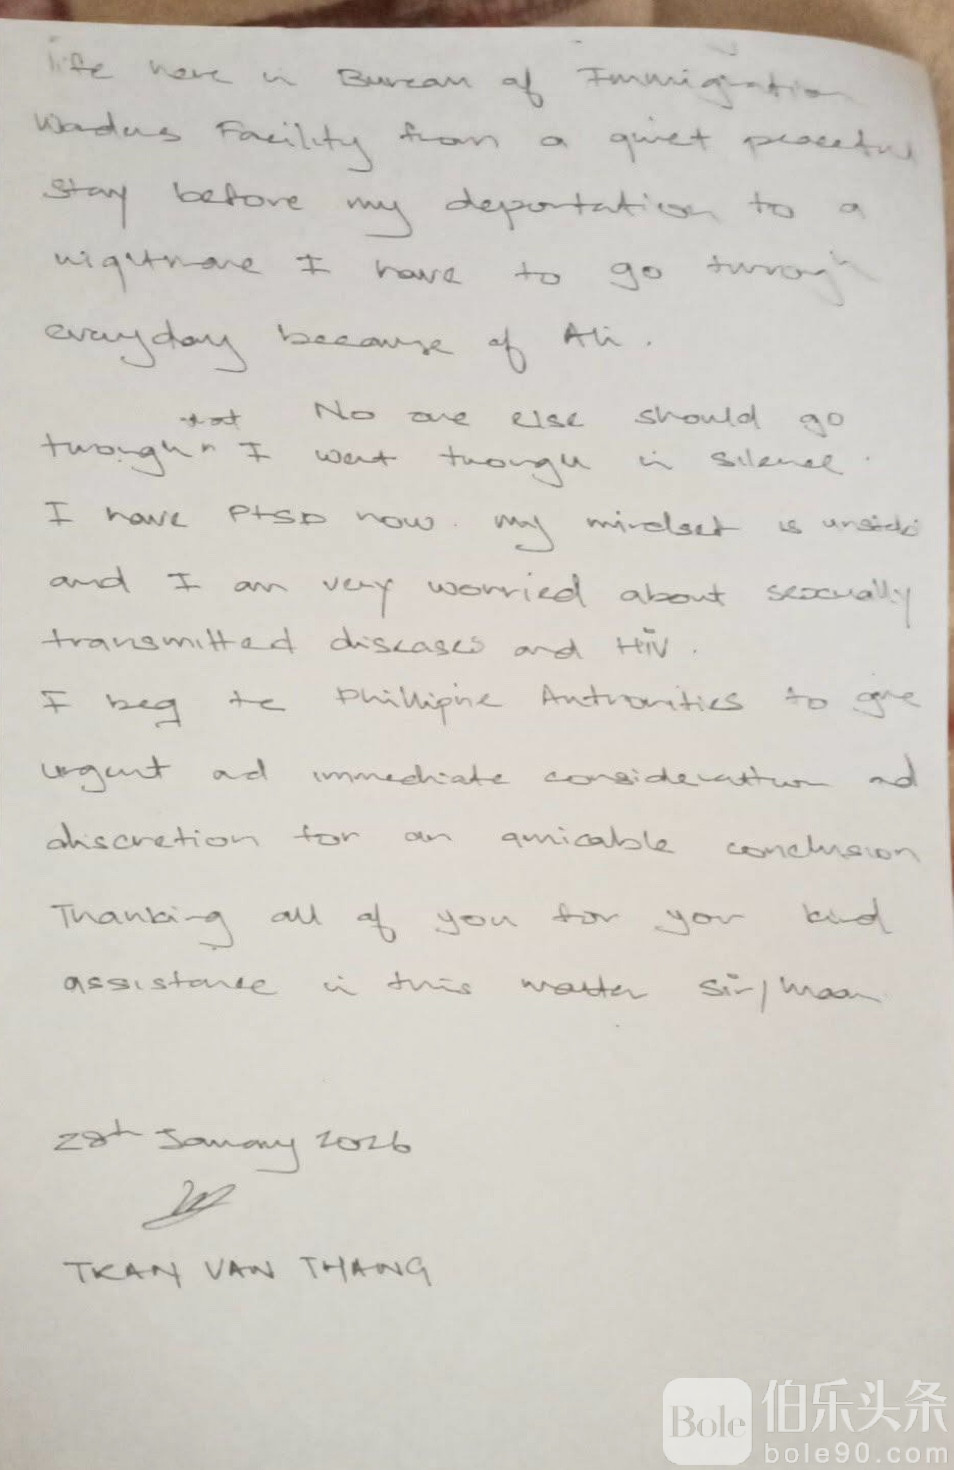 life here in Bureau of Immigration
Wardens Facility from a quiet peaceful
stay before my deportation to a
nightmare I have to go through
everyday because of Ali.
No one else should go
through what I went through in silence.
I have PTSD now. my mindset is
and I am very worried about sexually
transmitted diseases and HIV.
I beg the Phillipine Authorities to give
urgent ad immediate consideration ad
discretion for an amicable conclusion
Thanking all of you for your kind
assistance in this matter Sir/Maam
28th January 2026
TRAN VAN THANG
Bole
伯乐头条
bole90.com